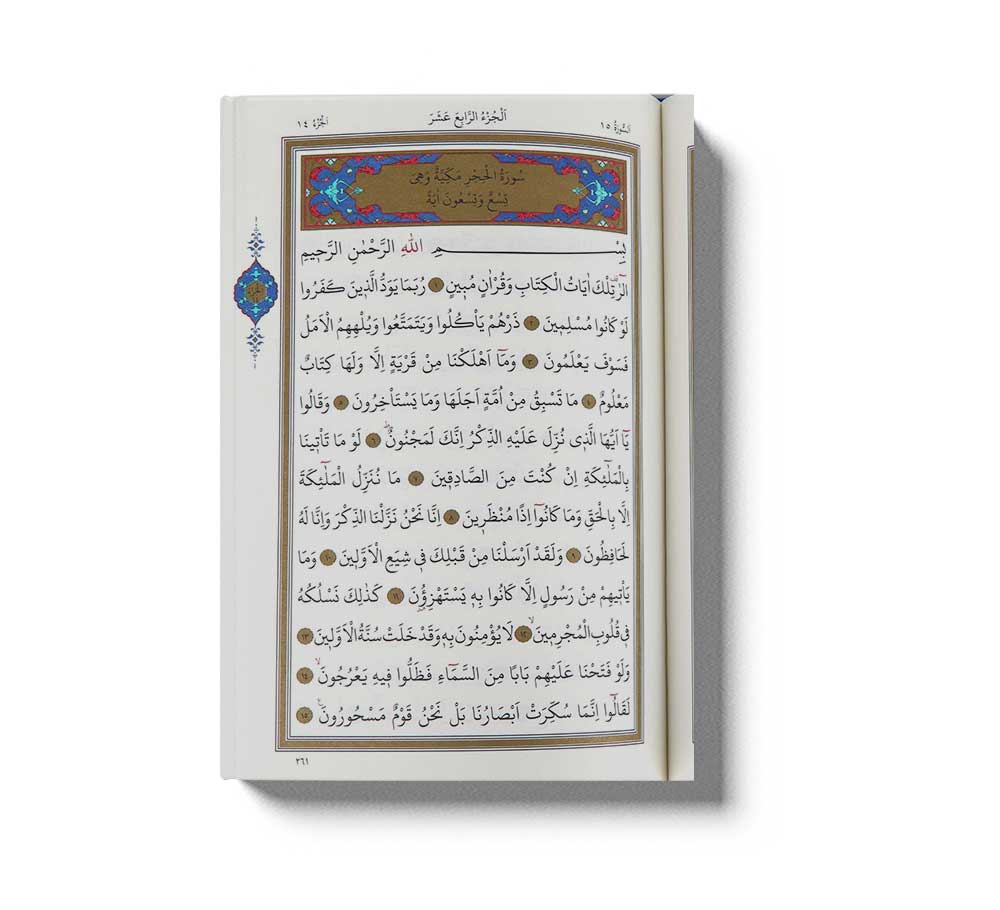 اَلْجُزْءُ الرَّابِعَ عَشَرَ
اَلسُّورَةُ ١٥
اَلْجُزْءُ ١٤
سُورَةُ الْحِجْرِ مَكِّيَّةٌ وَهِىَ
تِسْعٌ وَتِسْعُونَ اٰيَةً
بِسْمِ اللّٰهِ الرَّحْمٰنِ الرَّحِيمِ
الٓرٰ تِلْكَ اٰيَاتُ الْكِتَابِ وَقُرْاٰنٍ مُبِينٍ ١ رُبَمَا يَوَدُّ الَّذِينَ كَفَرُوا
لَوْ كَانُوا مُسْلِمِينَ ٢ ذَرْهُمْ يَأْكُلُوا وَيَتَمَتَّعُوا وَيُلْهِهِمُ الْاَمَلُ
فَسَوْفَ يَعْلَمُونَ ٣ وَمَٓا اَهْلَكْنَا مِنْ قَرْيَةٍ اِلَّا وَلَهَا كِتَابٌ
مَعْلُومٌ ٤ مَا تَسْبِقُ مِنْ اُمَّةٍ اَجَلَهَا وَمَا يَسْتَأْخِرُونَ ٥ وَقَالُوا
يَٓا اَيُّهَا الَّذِى نُزِّلَ عَلَيْهِ الذِّكْرُ اِنَّكَ لَمَجْنُونٌۜ ٦ لَوْ مَا تَأْتِينَا
بِالْمَلٰٓئِكَةِ اِنْ كُنْتَ مِنَ الصَّادِقِينَ ٧ مَا نُنَزِّلُ الْمَلٰٓئِكَةَ
اِلَّا بِالْحَقِّ وَمَا كَانُٓوا اِذًا مُنْظَرِينَ ٨ اِنَّا نَحْنُ نَزَّلْنَا الذِّكْرَ وَاِنَّا لَهُ
لَحَافِظُونَ ٩ وَلَقَدْ اَرْسَلْنَا مِنْ قَبْلِكَ فِى شِيَعِ الْاَوَّلِينَ ١٠ وَمَا
يَأْتِيهِمْ مِنْ رَسُولٍ اِلَّا كَانُوا بِهِ يَسْتَهْزِؤُنَ ١١ كَذٰلِكَ نَسْلُكُهُ
فِى قُلُوبِ الْمُجْرِمِينَۙ ١٢ لَا يُؤْمِنُونَ بِهِ وَقَدْ خَلَتْ سُنَّةُ الْاَوَّلِينَ ١٣
وَلَوْ فَتَحْنَا عَلَيْهِمْ بَابًا مِنَ السَّمَٓاءِ فَظَلُّوا فِيهِ يَعْرُجُونَۙ ١٤
لَقَالُٓوا اِنَّمَا سُكِّرَتْ اَبْصَارُنَا بَلْ نَحْنُ قَوْمٌ مَسْحُورُونَ۟ ١٥
٢٦١